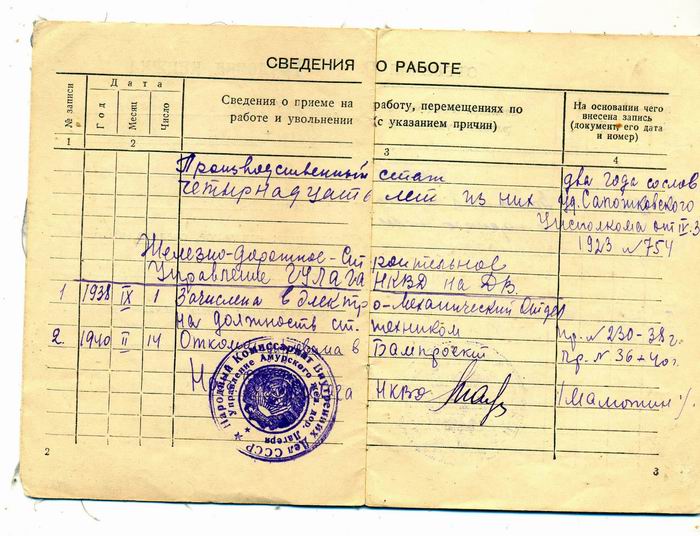 СВЕДЕНИЯ О РАБОТЕ
№ записи
Дата
Год
Месяц
Число
Сведения о приеме на работу, перемещениях по
работе и увольнении (с указанием причин)
На основании чего
внесена запись
(документ, его дата
и номер)
1
2
3
4
Производственный стаж два года со слов
четырнадцать лет из них уд. Сапожковского
Уисполкома от IV.3
1923 № 754
Железно-дорожное-Строительное
Управление ГУЛАГА НКВД на ДВ.
1 1938 IX 1 Зачислена в Электро-Механический Отдел
на должность ст. техником пр. № 230-38 г.
2. 1940 II 14 Откомандирована в Бампроект Пр. № 36-40 г.
НКВД /Мамотин/.
Народный Комиссариат Внутренних Дел СССР
Управление Амурского жел. дор. Лагеря
2
3